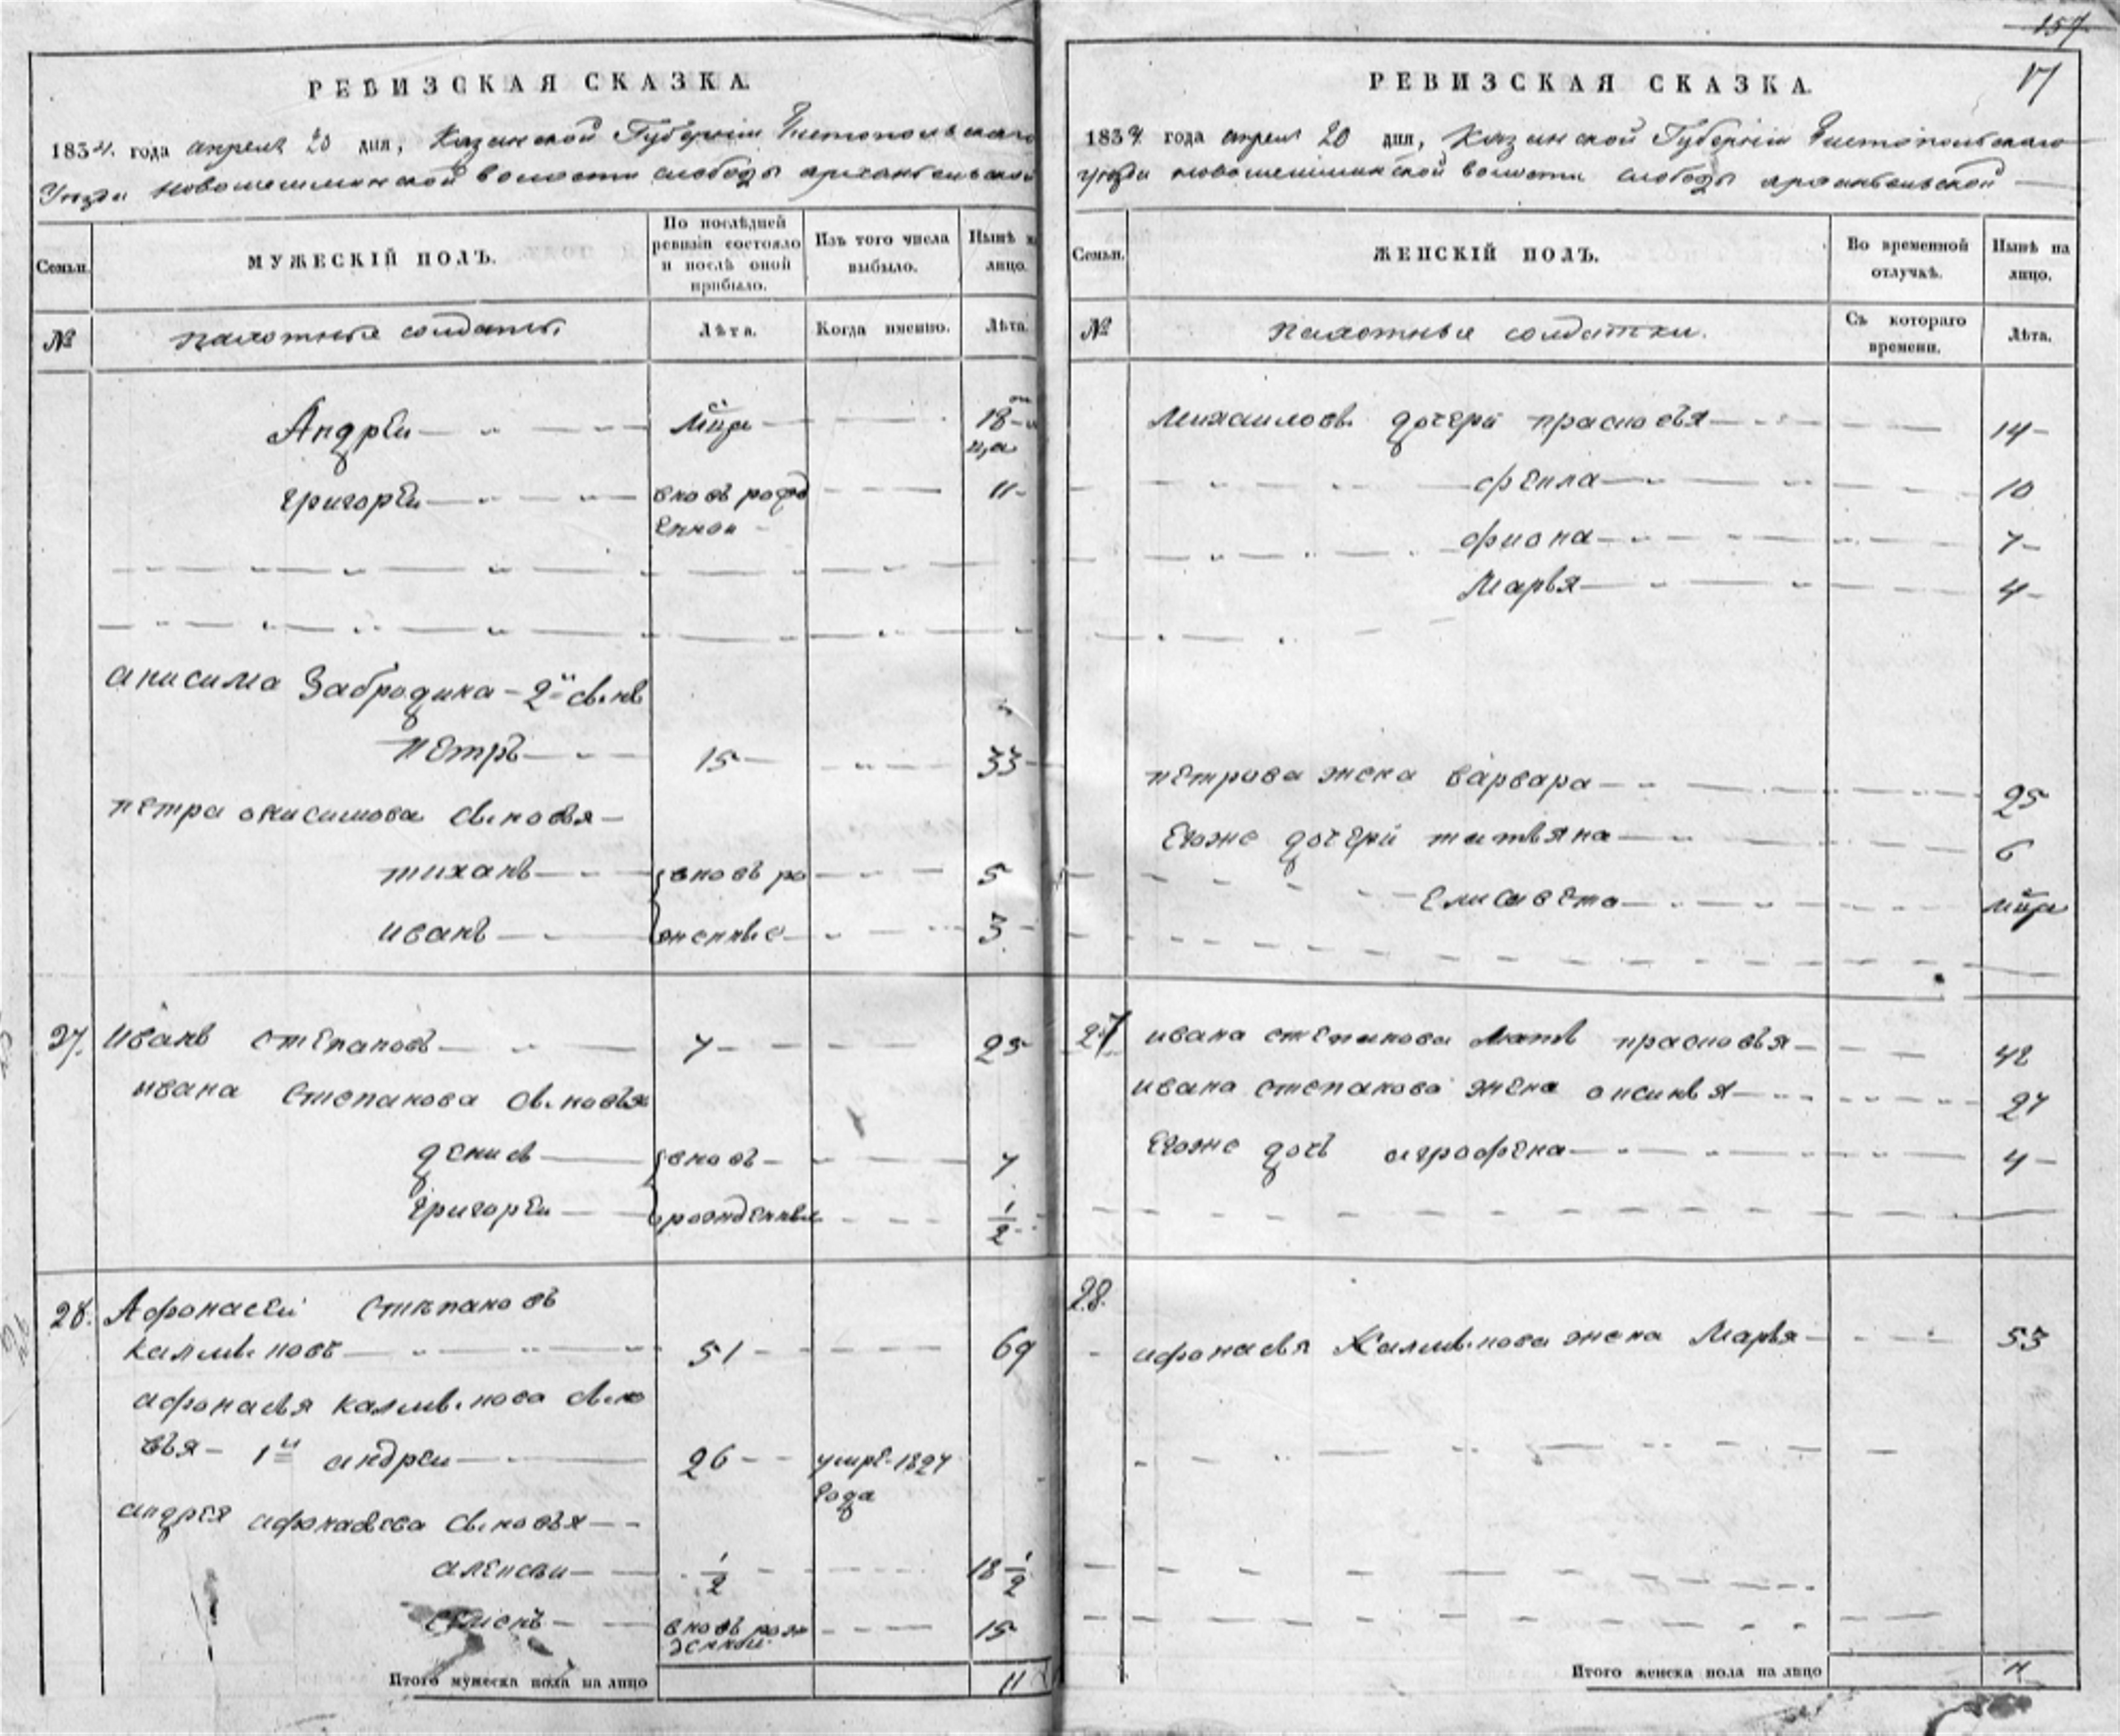 РЕВИЗСКАЯ СКАЗКА.
1834. года апреля 20 дня, Казанской Губернiи Чистопольскаго
Уезда новошешминской волости слободы архангельской
Семьи. МУЖЕСКІЙ ПОЛЪ. По послѣдней ревизіи состояло и послѣ оной прибыло. Изъ того числа выбыло. Нынѣ на лицо.
№ пахотные солдаты. Лѣта. Когда именно. Лѣта.
Андреи 18
григореи вновь рожд 11
енной
анисима Забродина 2й сынъ
петръ 15 33
петра анисимова сыновья
тиханъ вновь ро 5
иванъ женные 3
27. иванъ степановъ 7 25
ивана степанова сыновья
денисъ вновь 7
григореи рожденные 1/2
28. Афонасеи степановъ
калмыновъ 51 69
афонасья калмынова сыно
вья 1й андреи 26 умре 1827
года
андрея афонасьева сыновья
алексеи 1/2 18 1/2
семенъ вновь рож 15
денной
Итого мужеска пола на лицо 11
157
17
РЕВИЗСКАЯ СКАЗКА.
1834 года апреля 20 дня, Казанской Губернiи Чистопольскаго
уезда новошешминской волости слободы архангельской
Семьи. ЖЕНСКІЙ ПОЛЪ. Во временной отлучкѣ. Нынѣ на лицо.
№ пахотные солдатки. Съ котораго времени. Лѣта.
михаиловы дочери прасковья 14
фекла 10
фиона 7
Марья 4
петрова жена варвара 25
егоже дочери татьяна 6
елисавета
27 ивана степанова мать прасковья 42
ивана степанова жена аксинья 27
егоже дочь аграфена 4
28.
афонасья Калмынова жена Марья 53
Итого женска пола на лицо 11